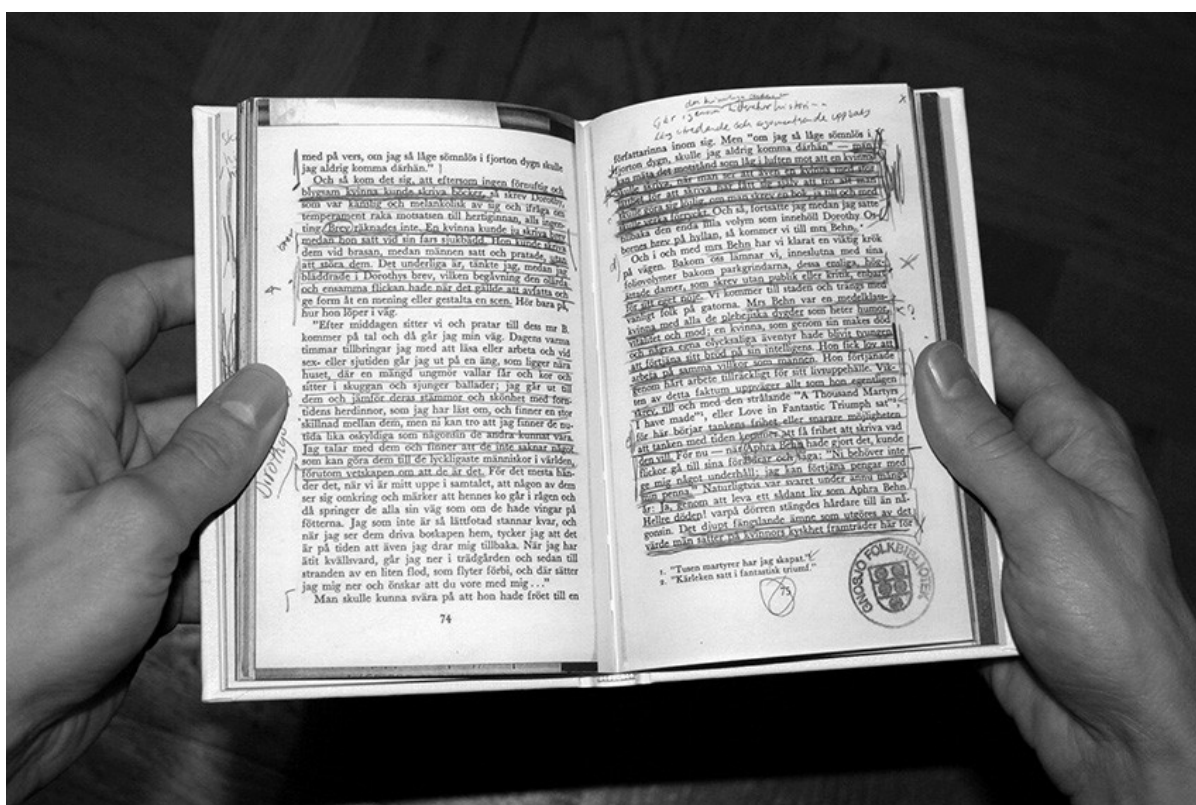 med på vers, om jag så låge sömnlös i fjorton dygn skulle
jag aldrig komma därhän."
Och så kom det sig, att eftersom ingen förnuftig och
blygsam kvinna kunde skriva böcker, så skrev Dorothy,
som var känslig och melankolisk av sig och ifråga om
temperament raka motsatsen till hertiginnan, alls ingen-
ting. Brev räknades inte. En kvinna kunde ju skriva brev
medan hon satt vid sin fars sjukbädd. Hon kunde skriva
dem vid brasan, medan männen satt och pratade, utan
att störa dem. Det underliga är, tänkte jag, medan jag
bläddrade i Dorothys brev, vilken begåvning den olärda
och ensamma flickan hade när det gällde att avfatta och
ge form åt en mening eller gestalta en scen. Hör bara på,
hur hon löper i väg.
"Efter middagen sitter vi och pratar till dess mr B.
kommer på tal och då går jag min väg. Dagens varma
timmar tillbringar jag med att läsa eller arbeta och vid
sex- eller sjutiden går jag ut på en äng, som ligger nära
huset, där en mängd ungmör vallar får och kor och
sitter i skuggan och sjunger ballader; jag går ut till
dem och jämför deras stämmor och skönhet med forn-
tidens herdinnor, som jag har läst om, och finner en stor
skillnad mellan dem, men ni kan tro att jag finner de nu-
tida lika oskyldiga som någonsin de andra kunnat vara.
Jag talar med dem och finner att de inte saknar något
som kan göra dem till de lyckligaste människor i världen,
förutom vetskapen om att de är det. För det mesta hän-
der det, när vi är mitt uppe i samtalet, att någon av dem
ser sig omkring och märker att hennes ko går i rågen och
då springer de alla sin väg som om de hade vingar på
fötterna. Jag som inte är så lättfotad stannar kvar, och
när jag ser dem driva boskapen hem, tycker jag att det
är på tiden att även jag drar mig tillbaka. När jag har
ätit kvällsvard, går jag ner i trädgården och sedan till
stranden av en liten flod, som flyter förbi, och där sätter
jag mig ner och önskar att du vore med mig . . ."
Man skulle kunna svära på att hon hade fröet till en
74
författarinna inom sig. Men "om jag så låge sömnlös i
fjorton dygn, skulle jag aldrig komma därhän" — man
kan mäta det motstånd som låg i luften mot att en kvinna
skulle skriva, när man ser att även en kvinna med stor
för att skriva har fått sig själv att tro att
om man skrev en bok, ja till och med
Och så, fortsatte jag medan jag satte
tillbaka den enda lilla volym som innehöll Dorothy Os-
bornes brev på hyllan, så kommer vi till mrs Behn.
Och i och med mrs Behn har vi klarat en viktig krök
på vägen. Bakom oss lämnar vi, inneslutna med sina
foliovolymer bakom parkgrindarna, dessa ensliga, hög-
ättade damer, som skrev utan publik eller kritik, enbart
för sitt eget nöje. Vi kommer till staden och trängs med
vanligt folk på gatorna. Mrs Behn var en medelklass-
kvinna med alla de plebejiska dygder som heter humor,
vitalitet och mod; en kvinna, som genom sin makes död
och några egna olycksaliga äventyr hade blivit tvungen
att förtjäna sitt bröd på sin intelligens. Hon fick lov att
arbeta på samma villkor som männen. Hon förtjänade
genom hårt arbete tillräckligt för sitt livsuppehälle. Vik-
ten av detta faktum uppväger allt som hon egentligen
skrev, till och med den strålande "A Thousand Martyrs
I have made"¹, eller Love in Fantastic Triumph sat"²
för här börjar tankens frihet eller snarare möjligheten
att tanken med tiden kommer att få frihet att skriva vad
den vill. För nu — när Aphra Behn hade gjort det, kunde
flickor gå till sina föräldrar och säga: "Ni behöver inte
ge mig något underhåll; jag kan förtjäna pengar med
min penna." Naturligtvis var svaret under ännu många
år: Ja, genom att leva ett sådant liv som Aphra Behn
Hellre döden! varpå dörren stängdes hårdare till än nå-
gonsin. Det djupt fängslande ämne som utgöres av det
värde män sätter på kvinnors kyskhet framträder här för
1. "Tusen martyrer har jag skapat."
2. "Kärleken satt i fantastisk triumf."
75
GNOSJÖ FOLKBIBLIOTEK